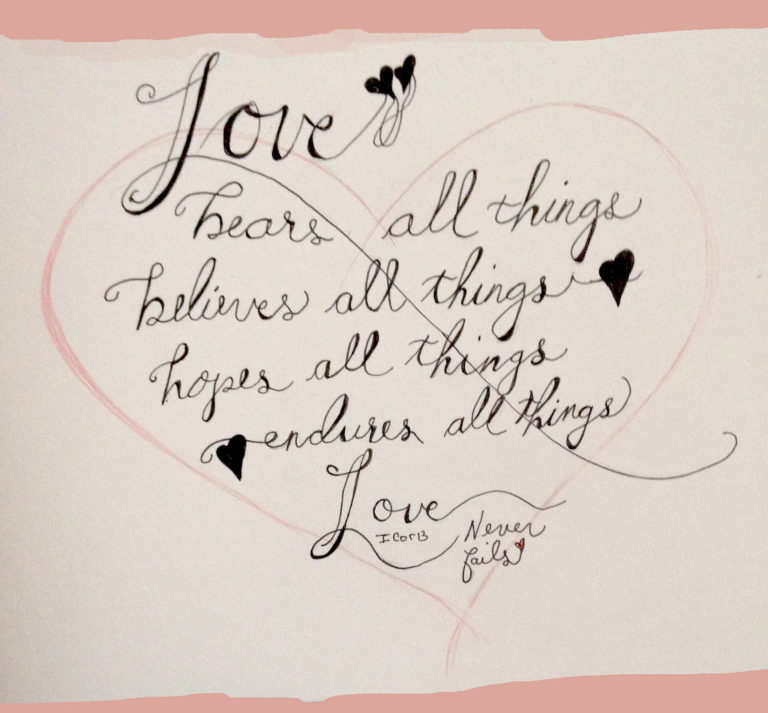 Love
bears all things
believes all things
hopes all things
endures all things
Love
I Cor 13
Never
fails